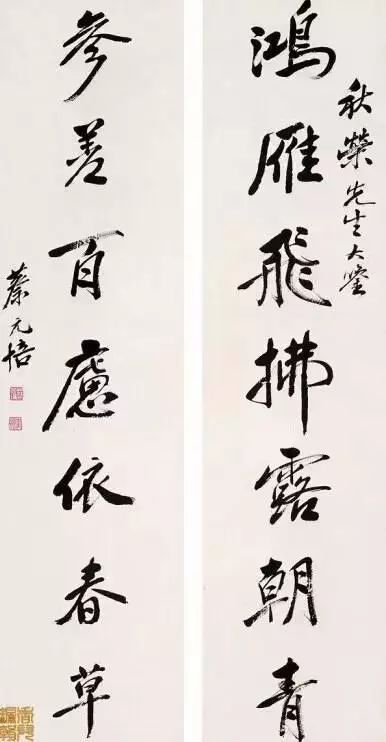 秋榮先生大鉴
鴻雁飛拂露朝青
參差百慮依春草
蔡元培